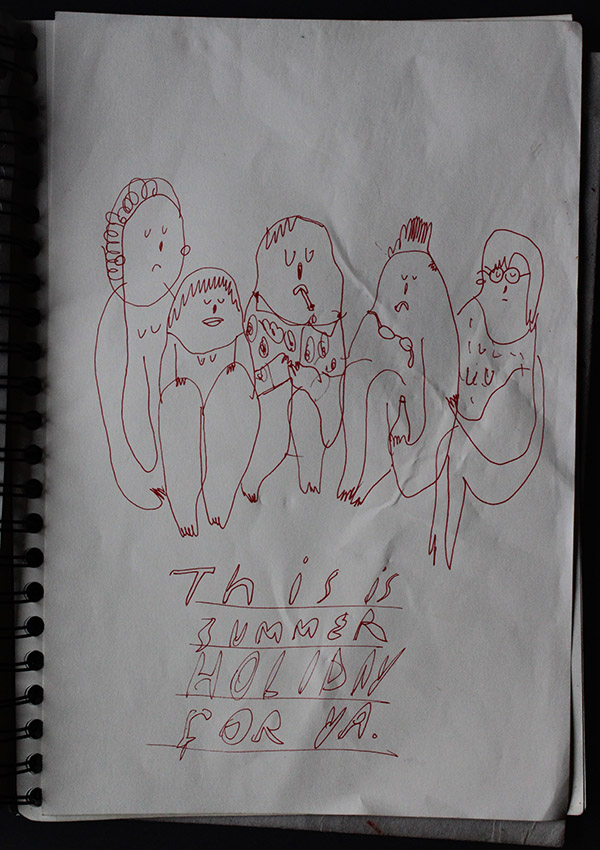 This is
SUMMER
HOLIDAY
FOR YA.